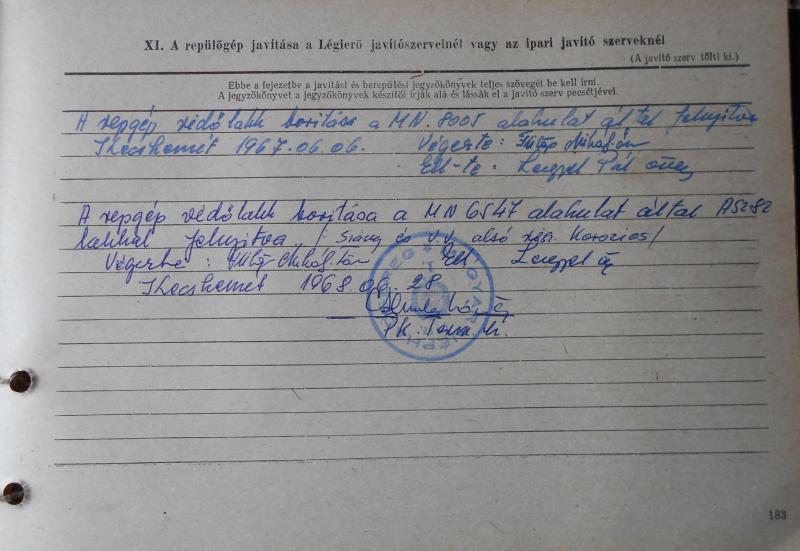 XI. A repülőgép javítása a Légierő javítószerveinél vagy az ipari javító szerveknél
(A javító szerv tölti ki.)
Ebbe a fejezetbe a javítási és berepülési jegyzőkönyvek teljes szövegét be kell írni.
A jegyzőkönyvet a jegyzőkönyvek készítői írják alá és lássák el a javító szerv pecsétjével.
A repgép védőlakk borítása a MN. 8005 alakulat által felujitva
Kecskemét 1967.06.06. Végezte: Fülöp Mihály őrm
Ell-te. Lengyel Pál
A repgép védőlakk borítása a MN 6547 alakulat által AS282
lakkal felujitva / Szárny és v.v. alsó rész. Koroziós /
Végezte: Fülöp Mihály Ell. Lengyel
Kecskemét 1968.06.28
PK. Techn. h.
183